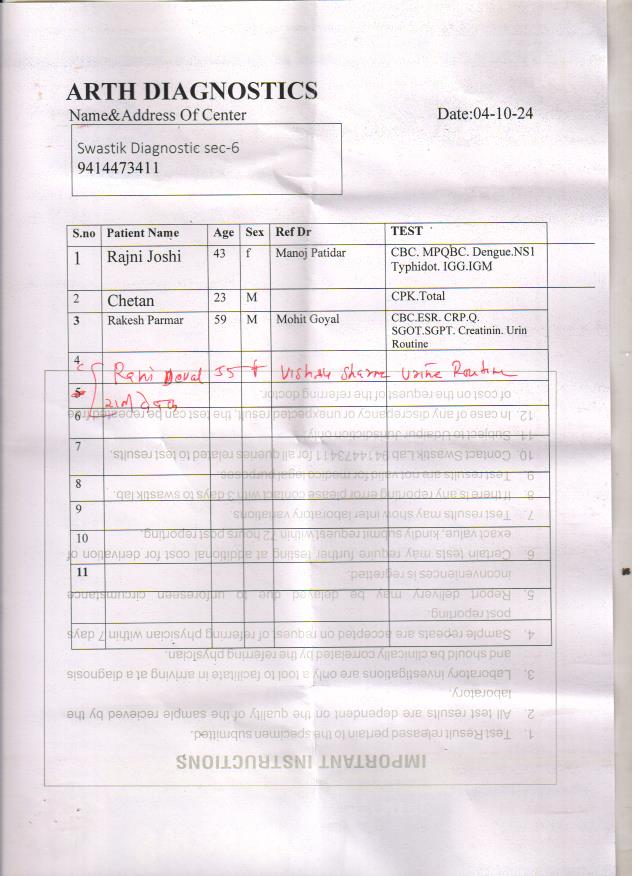 ARTH DIAGNOSTICS
Name&Address Of Center
Date:04-10-24
Swastik Diagnostic sec-6
9414473411
S.no Patient Name Age Sex Ref Dr TEST
1 Rajni Joshi 43 f Manoj Patidar CBC. MPQBC. Dengue.NS1
Typhidot. IGG.IGM
2 Chetan 23 M CPK.Total
3 Rakesh Parmar 59 M Mohit Goyal CBC.ESR. CRP.Q.
SGOT.SGPT. Creatinin. Urin
Routine
4 Rani 55 f Sharma Urine Routine
5
6
7
8
9
10
11
of cost on the request of the referring doctor.
12. In case of any discrepancy or unexpected result, the test can be repeated free
11. Subject to Udaipur Jurisdiction only.
10. Contact Swastik Lab 9414473411 for all queries related to test results.
9. Test results are not valid for medico legal purposes.
8. If there is any reporting error please contact with 3 days to swastik lab.
7. Test results may show inter laboratory variations.
exact value, kindly submit request within 72 hours post reporting.
6. Certain tests may require further testing at additional cost for derivation of
inconveniences is regretted.
5. Report delivery may be delayed due to unforeseen circumstance
post reporting.
4. Sample repeats are accepted on request of referring physician within 7 days
and should be clinically correlated by the referring physician.
3. Laboratory investigations are only a tool to facilitate in arriving at a diagnosis
laboratory.
2. All test results are dependent on the quality of the sample recieved by the
1. Test Result released pertain to the specimen submitted.
IMPORTANT INSTRUCTIONS